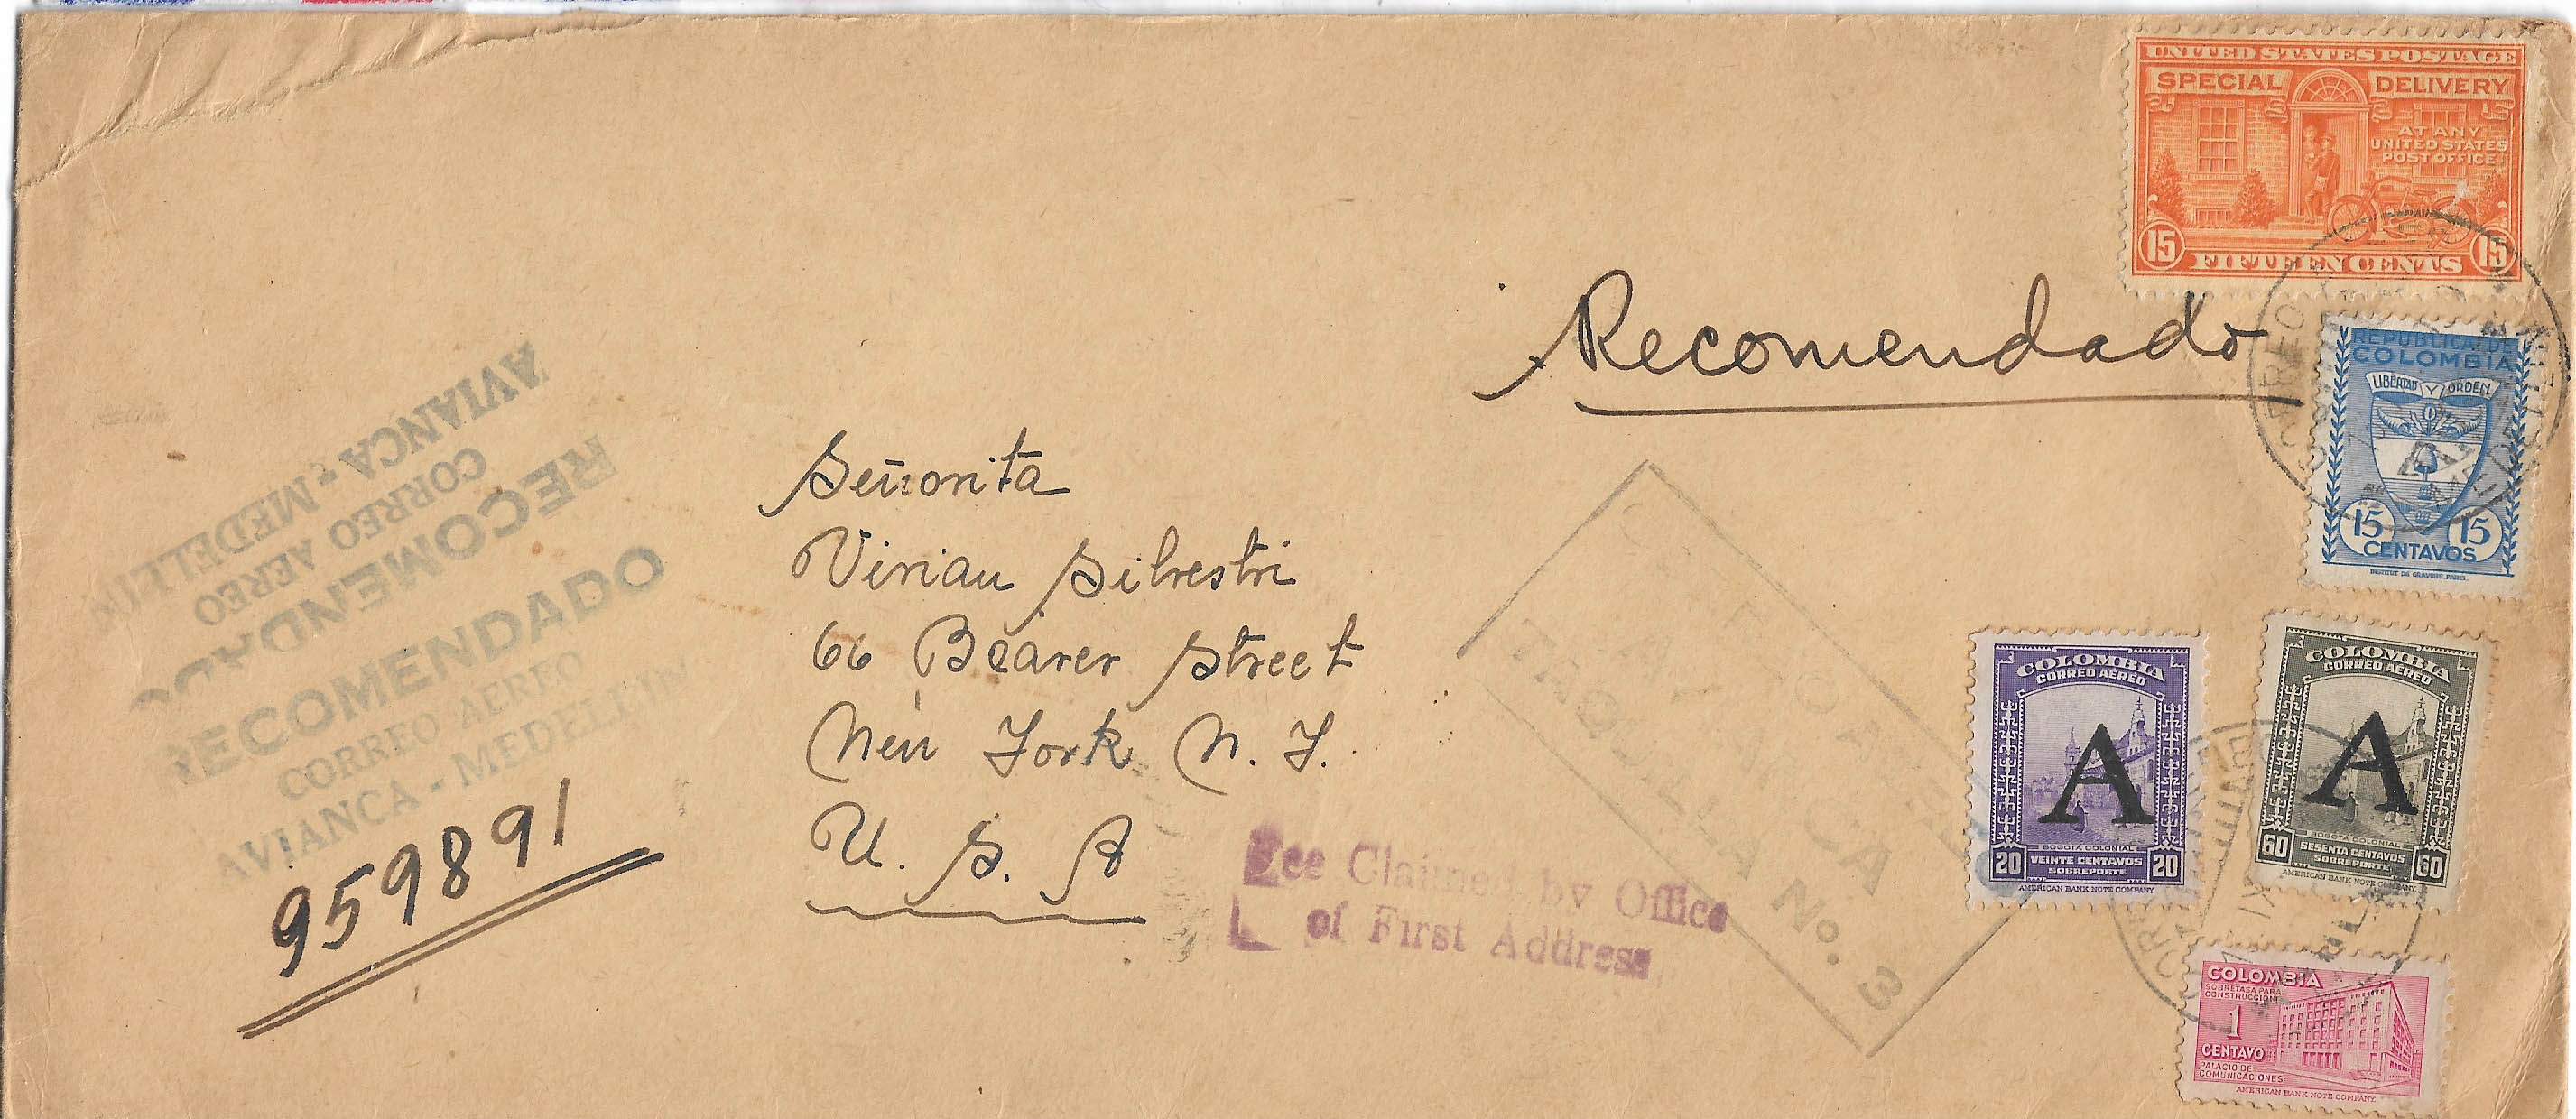 UNITED STATES POSTAGE
SPECIAL DELIVERY
AT ANY
UNITED STATES
POST OFFICE
15 15
FIFTEEN CENTS
Recomendado
REPUBLICA DE
COLOMBIA
LIBERTAD Y ORDEN
15 15
CENTAVOS
INSTITUT DE GRAVURE, PARIS
AVIANCA - MEDELLIN
CORREO AEREO
RECOMENDADO
RECOMENDADO
CORREO AEREO
AVIANCA - MEDELLIN
959891
Señorita
Virian Silvestri
66 Beaver Street
New York N. Y.
U. S. A
AVIANCA
TAQUILLA No. 3
Fee Claimed by Office
of First Address
COLOMBIA
CORREO AEREO
A
BOGOTA COLONIAL
20 VEINTE CENTAVOS 20
SOBREPORTE
AMERICAN BANK NOTE COMPANY
COLOMBIA
CORREO AEREO
A
BOGOTA COLONIAL
60 SESENTA CENTAVOS 60
SOBREPORTE
AMERICAN BANK NOTE COMPANY
COLOMBIA
SOBRETASA PARA
CONSTRUCCION
1
CENTAVO
PALACIO DE
COMUNICACIONES
AMERICAN BANK NOTE COMPANY